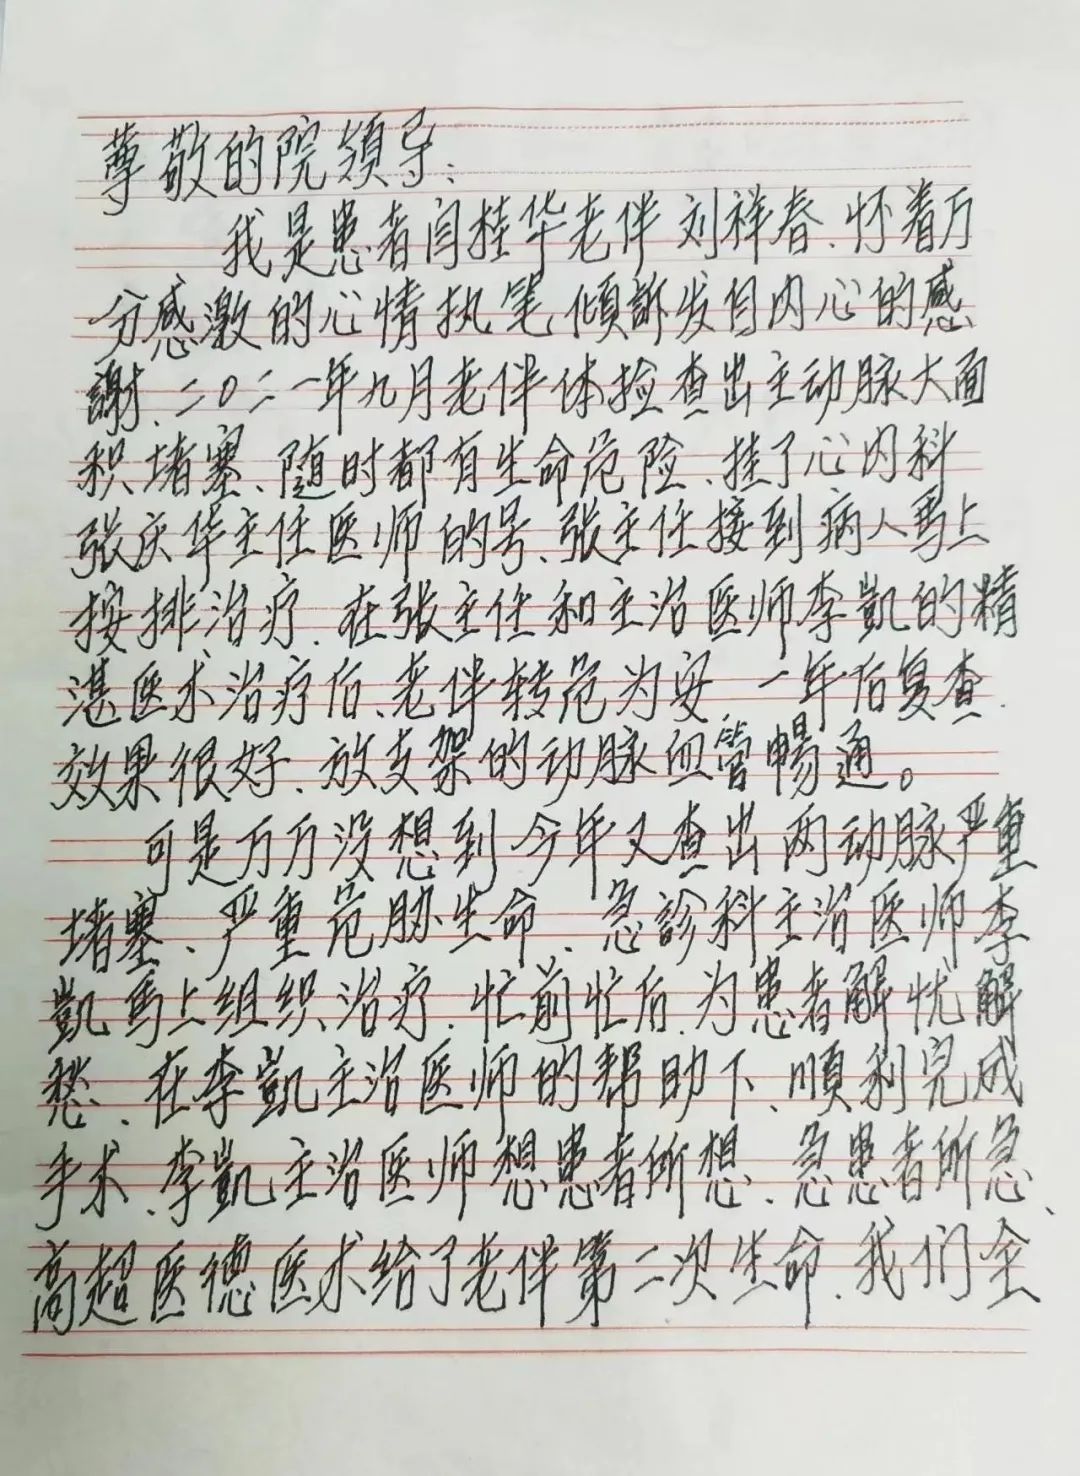 尊敬的院领导、
我是患者闫桂华老伴刘祥春、怀着万
分感激的心情执笔倾訴发自内心的感
謝、二〇二一年九月老伴体捡查出主动脉大面
积堵塞、随时都有生命危险、挂了心内科
张庆华主任医师的号、张主任接到病人馬上
按排治疗、在张主任和主治医师李凱的精
湛医术治疗后、老伴转危为安 一年后复查
效果很好、放支架的动脉血管暢通。
可是万万没想到今年又查出两动脉严重
堵塞、严重危胁生命、急診科主治医师李
凱馬上组织治疗、忙前忙后、为患者解忧解
愁、在李凱主治医师的帮助下、順利完成
手术、李凱主治医师想患者所想、急患者所急、
高超医德医术给了老伴第二次生命、我们全